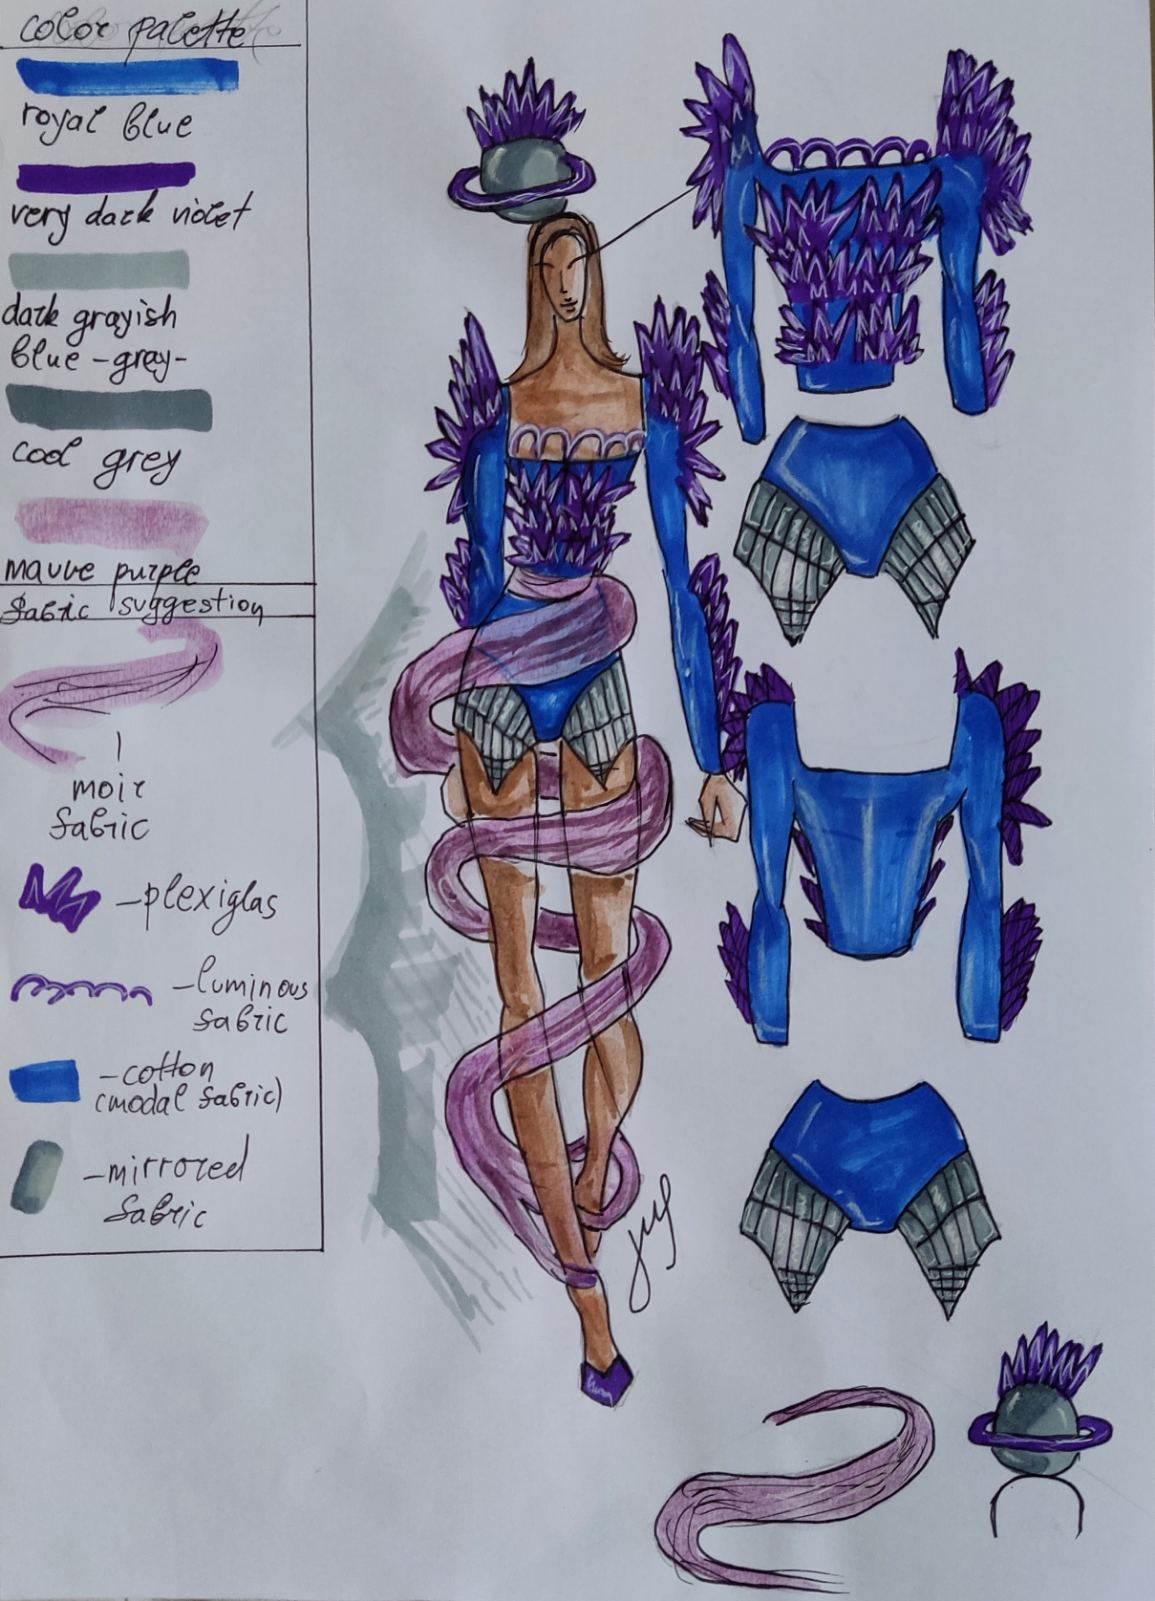 color palette
royal blue
very dark violet
dark grayish
blue -gray-
cool grey
mauve purple
fabric suggestion
moir
fabric
-plexiglas
-luminous
fabric
-cotton
(modal fabric)
-mirrored
fabric